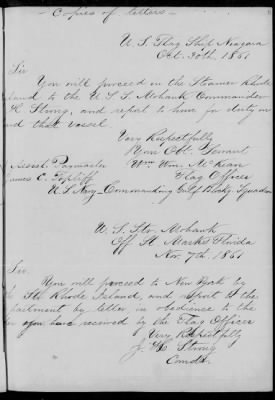 Copies of letters
U. S. Flag Ship Niagara
Oct. 30th 1861
Sir
You will proceed in the Steamer Rhode
land to the U. S. S. Mohawk Commander
Strong, and report to him for duty on
and that vessel.
Very Respectfully
Your Obt. Servant
Wm. Wm. McKean
Flag Officer
Asst. Paymaster
James C.
U. S. Navy Commanding Gulf Blockg Squadron
U. S. Str. Mohawk
Off St Marks Florida
Nov. 7th 1861
Sir.
You will proceed to New York by
Str Rhode Island, and report to the
partment by letter, in obedience to the
you have received by the Flag Officer
Very Respectfully
Strong
Comdr.